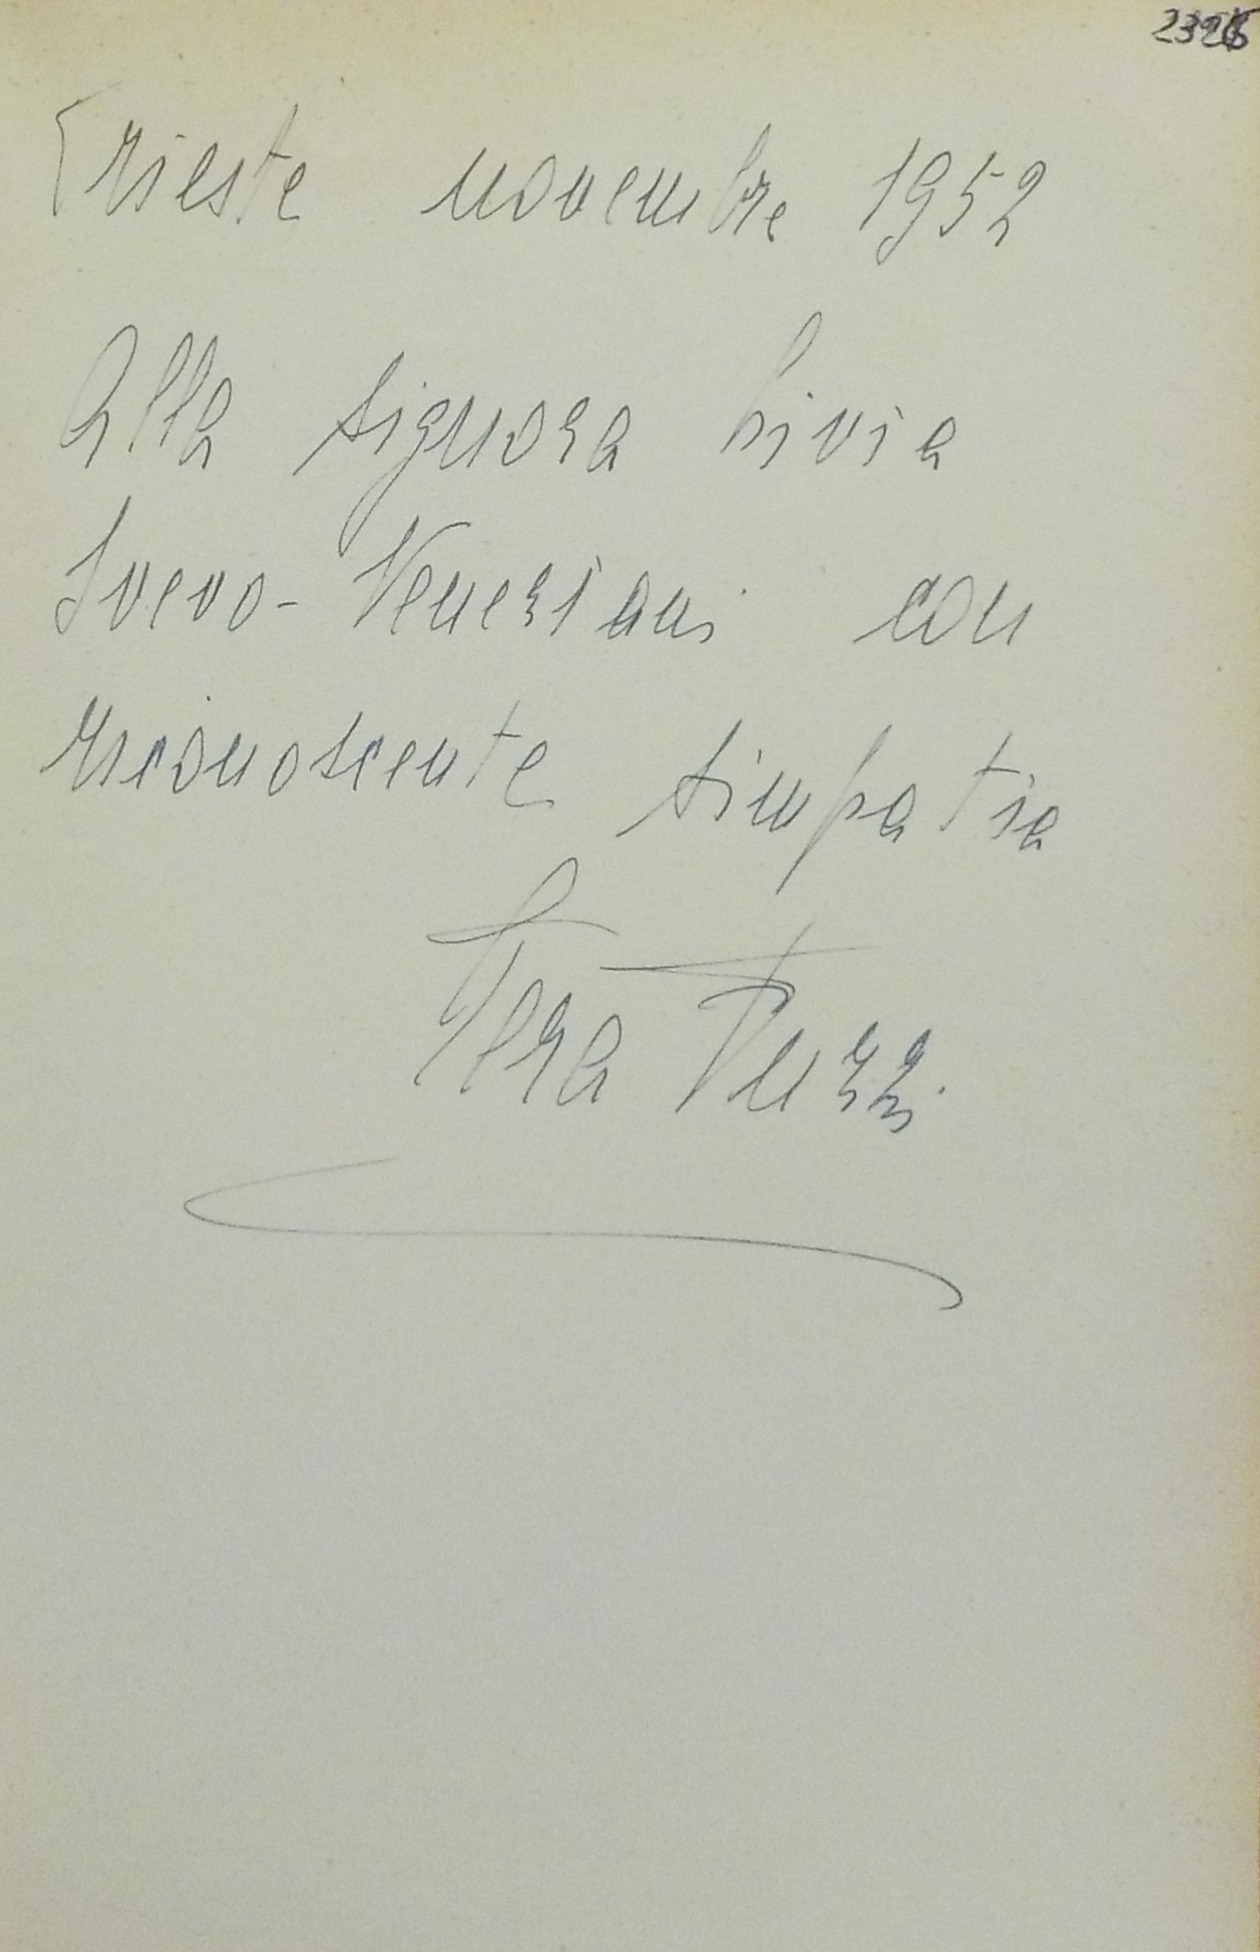 Trieste novembre 1952
Alla signora Livia
Svevo-Veneziani con
riconoscente simpatia